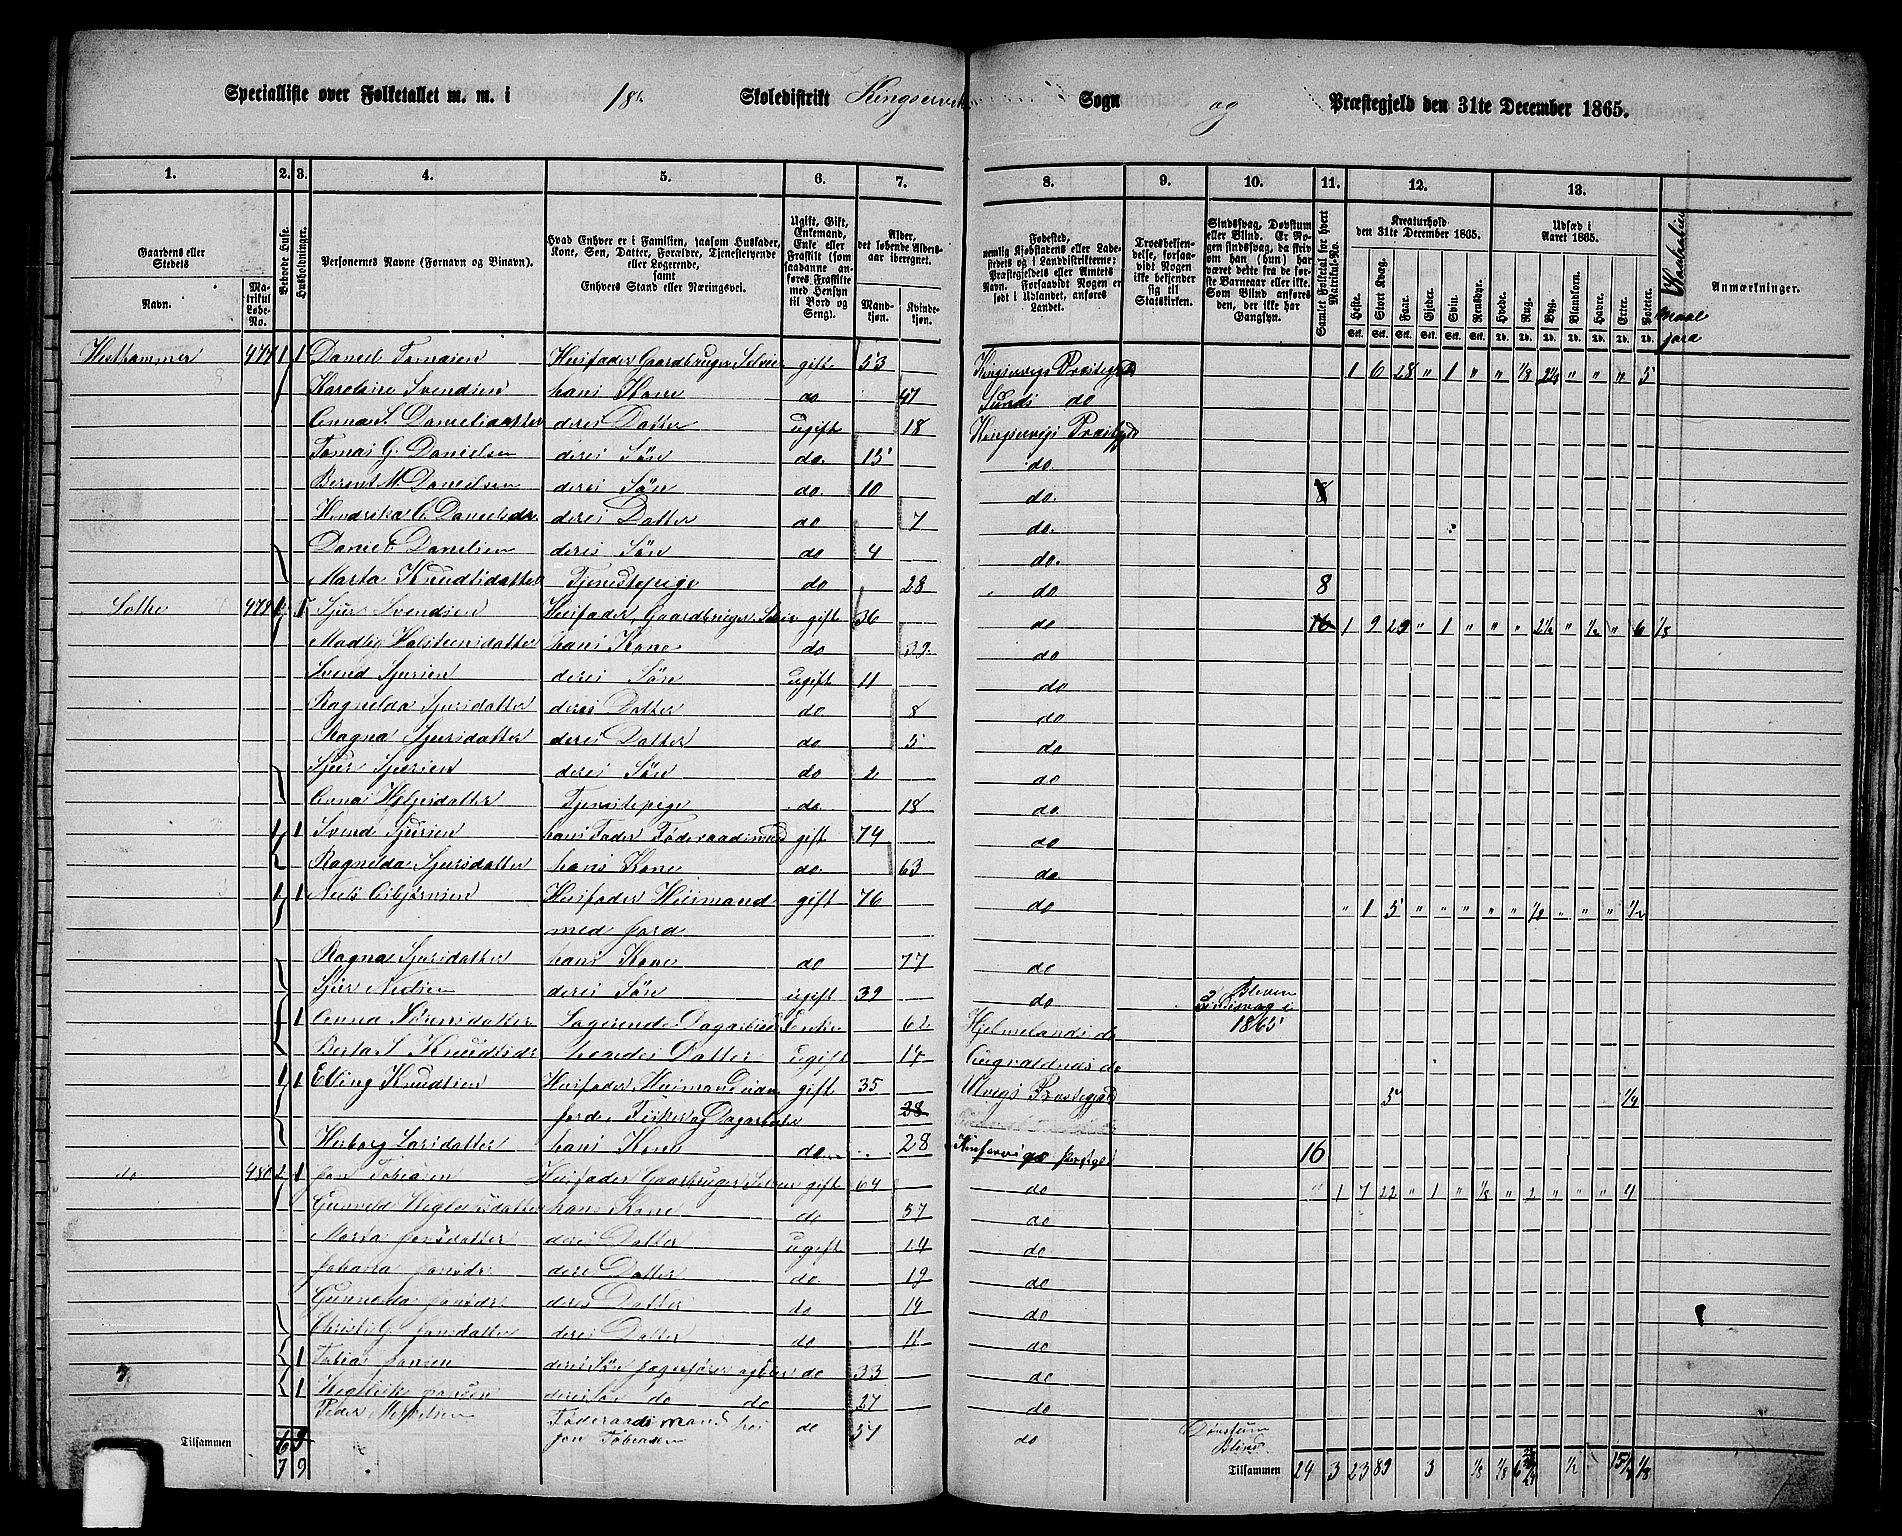 Specialliste over Folketallet m. m. i 18de Skoledistrikt Kingservik Sogn og Præstegjeld den 31te December 1865.
1. 2. 3. 4. 5. 6. 7. 8. 9. 10. 11. 12. 13.
Gaardens eller Stedets
Navn. Matrikul Løbe-No.
Beboede Huse.
Husholdninger.
Personernes Navne (Fornavn og Binavn).
Hvad Enhver er i Familien, saasom Husfader, Kone, Søn, Datter, Forældre, Tjenestetyende eller Logerende, samt Enhvers Stand eller Næringsvei.
Ugift, Gift, Enkemand, Enke eller Fraskilt (som saadanne anføres Fraskilte med Hensyn til Bord og Seng).
Alder, det løbende Aldersaar iberegnet.
Mandkjøn. Kvindekjøn.
Fødested, nemlig Kjøbstadens eller Ladestedets og i Landdistrikterne: Præstegjeldets eller Amtets Navn. Forsaavidt Nogen er født i Udlandet, anføres Landet.
Troesbekjendelse, forsaavidt Nogen ikke bekjender sig til Statskirken.
Sindssvag, Døvstum eller Blind. Er Nogen sindssvag, da skrives om han (hun) har været dette fra de første Barneaar eller ikke. Som Blind anføres de, der ikke har Gangsyn.
Samlet Folketal for hvert Matrikul-No.
Kreaturhold den 31te December 1865.
Heste. Stort Kvæg. Faar. Gjeder. Svin. Rensdyr.
Udsæd i Aaret 1865.
Hvede. Rug. Byg. Blandkorn. Havre. Erter. Poteter.
Maal jord
Anmærkninger.
Hesthammer 979 1 1 Daniel Tomasen Husfader Gaardbruger Selveier gift 53 Kingservigs Præstegjeld 1 6 28 " 1 " " 1/8 2 1/4 " " " 5
Karoline Svendsen hans Kone do 47 Sunds do
Anna S. Danielsdatter deres Datter ugift 18 Kingservigs Præstegjeld
Tomas G. Danielsen deres Søn do. 15 do.
Berent M. Danielsen deres Søn do. 10 do. 8
Hendrika C. Danielsdr. deres Datter do 7 do.
Daniel Danielsen deres Søn do 4 do.
Marta Knudtsdatter Tjenestepige do 28 do 8
Lothe 979 Sjur Svendsen Husfader, Gaardbruger Selveier gift 36 do 16 1 9 29 " 1 " " " 2 1/2 " 1/2 " 6 1/8
Madli Halsteensdatter hans Kone do 39. do
Svend Sjursen deres Søn ugift 11 do
Ragnilda Sjursdatter deres Datter do. 8 do
Ragna Sjursdatter deres Datter do 5 do
Sjur Sjursen deres Søn do 2 do
Anna Helgesdatter Tjenestepige do. 18 do
1 1 Svend Sjursen hans Fader Føderaadsmand gift 74 do
Ragnilda Sjursdatter hans Kone do. 63 do
1 1 Niels Asbjørnsen Husfader Huusmand gift 76 do " 1 5 " " " " " 1/8 " " " 1/2
med jord
Ragna Sjursdatter hans Kone do 77 do
Sjur Nielsen deres Søn ugift 39 do Bleven sindssvag i 1865
1 Anna Sørensdatter Logerende Dagarbeid Enke 62 Hjelmelands do
Berta S. Knudtsdr hendes Datter ugift 17 Augvaldsnes do
1 1 Elling Knudtsen Husfader Husmand uden gift 35 Ulvigs Præstegjeld 5 1/4
jord Fisker og Dagarbeider 28
Herborg Larsdatter hans Kone do 28 Kinservigs præstegjeld 16
do 980 2 1 Jon Tobiasen Husfader Gaardbruger Selveier gift 64 do 1 7 22 " 1 " 1/8 " 2 " " " 4
Gunvild Heglesdatter hans Kone do 57 do
Marta Jonsdatter deres Datter ugift 24 do
Johana Jonsdr. deres Datter do 19 do
Gunnelda Jonsdr. deres Datter do 14 do
Christi G. Jonsdatter deres Datter do 11 do
1 Tobias Jonsen deres Søn do 33 do
1 Heglleik Jonsen deres Søn do do 27 do
Peder Føderaadsmand hos do 57 do Døvstum
Jon Tobiasen Blind
Tilsammen 6 8
7 9
Tilsammen 24 3 23 89 3 1/8 1/8 6 1/2 15 1/4 1/8